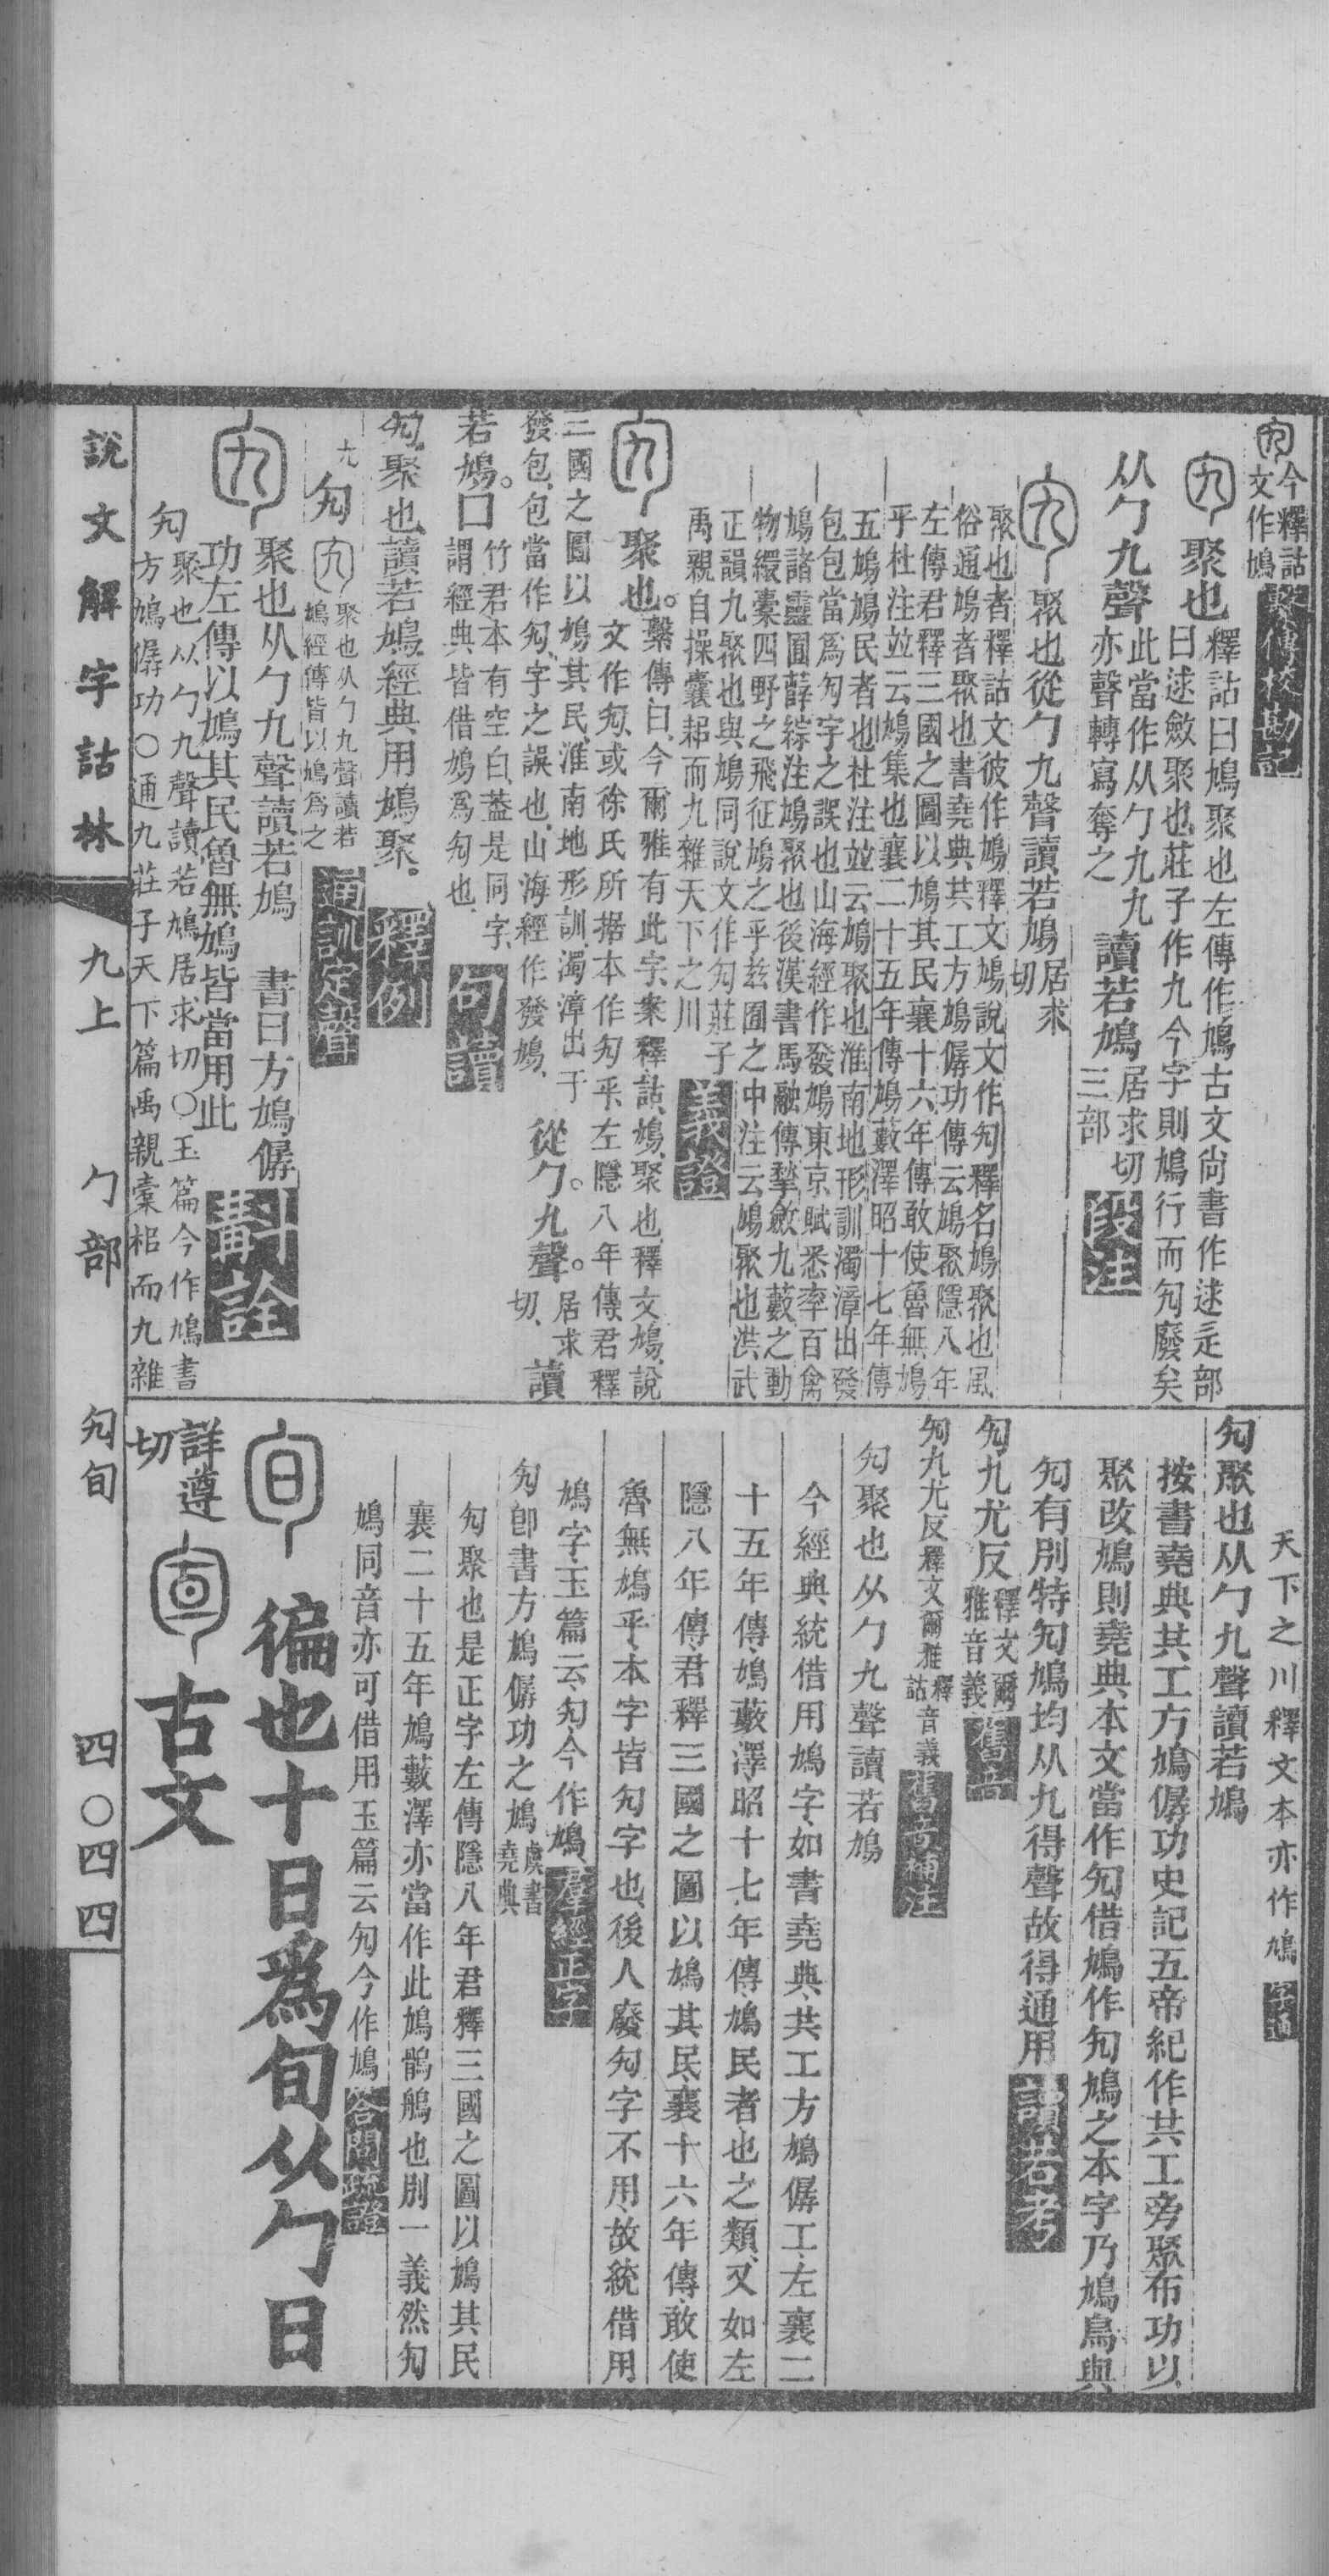 今釋詁
文作鳩
繫傳校勘記
聚也
釋詁曰鳩聚也左傳作鳩古文尙書作逑辵部
曰逑斂聚也莊子作九今字則鳩行而勼廢矣
从勹九聲
此當作从勹九九
亦聲轉寫奪之
讀若鳩
居求切
三部
段注
聚也從勹九聲讀若鳩
居求
切
聚也者釋詁文彼作鳩釋文鳩說文作勼釋名鳩聚也風
俗通鳩者聚也書堯典共工方鳩僝功傳云鳩聚隱八年
左傳君釋三國之圖以鳩其民襄十六年傳敢使魯無鳩
乎杜注竝云鳩集也襄二十五年傳鳩藪澤昭十七年傳
五鳩鳩民者也杜注竝云鳩聚也淮南地形訓濁漳出發
包包當爲勼字之誤也山海經作發鳩東京賦悉率百禽
鳩諸靈囿薛綜注鳩聚也後漢書馬融傳揫斂九藪之動
物繯橐四野之飛征鳩之乎兹囿之中注云鳩聚也洪武
正韻九聚也與鳩同說文作勼莊子
禹親自操橐耜而九雜天下之川
義證
聚也。
繫傳曰、今爾雅有此字、案釋詁、鳩、聚也、釋文鳩、說
文作勼、或徐氏所据本作勼乎、左隱八年傳、君釋
三國之圖以鳩其民、淮南地形訓、濁漳出于
發包、包當作勼、字之誤也、山海經作發鳩、
從勹。九聲。
居求
切、
讀
若鳩。口
竹君本有空白、葢是同字、
謂經典皆借鳩爲勼也、
句讀
勼、聚也、讀若鳩、經典用鳩聚、
釋例
九
勼
聚也从勹九聲讀若
鳩經傳皆以鳩爲之
通訓定聲
聚也从勹九聲讀若鳩　書曰方鳩僝
功左傳以鳩其民魯無鳩皆當用此
斠詮
勼
聚也从勹九聲讀若鳩居求切○玉篇今作鳩書
方鳩僝功○通九莊子天下篇禹親橐耜而九雜
說文解字詁林
九上
勹部
勼旬
四○四四
天下之川釋文本亦作鳩
字通
勼聚也从勹九聲讀若鳩
按書堯典共工方鳩僝功史記五帝紀作共工旁聚布功以
聚改鳩則堯典本文當作勼借鳩作勼鳩之本字乃鳩鳥與
勼有別特勼鳩均从九得聲故得通用
讀若考
勼九尤反
釋文爾
雅音義
舊音
勼九尤反釋文爾雅
釋
詁
音義
舊音補注
勼聚也从勹九聲讀若鳩
今經典統借用鳩字、如書堯典、共工方鳩僝工、左襄二
十五年傳、鳩藪澤昭十七年傳、鳩民者也之類、又如左
隱八年傳、君釋三國之圖以鳩其民、襄十六年傳、敢使
魯無鳩乎、本字皆勼字也、後人廢勼字不用、故統借用
鳩字、玉篇云、勼、今作鳩、
羣經正字
勼卽書方鳩僝功之鳩
虞書
堯典
勼聚也是正字左傳隱八年君釋三國之圖以鳩其民
襄二十五年鳩藪澤亦當作此鳩鶻鵃也別一義然勼
鳩同音亦可借用玉篇云勼今作鳩
合聞疏證
徧也十日爲旬从勹日
詳遵
切
古文